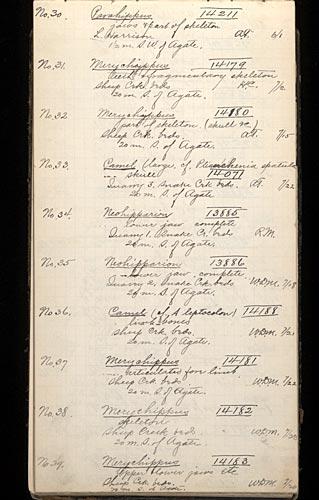 No. 30. Parahippus 14211
jaws & part of skeleton
L. Harrison A.T. 6/1
1½ m. S.W. of Agate.
No. 31. Merychippus 14179
& fragmentary skeleton
Sheep Crk. brds. 7/2
20 m. S. of Agate.
No. 32 Merychippus 14180
part of skeleton (skull no.)
Sheep Crk. brds. A.T. 7/15
20 m. S. of Agate.
No. 33. Camel (large, cf. spatula
skull 14071
Quarry 3, Snake Crk. brds. A.T. 7/22
20 m. S. of Agate.
No. 34. Neohipparion 13885
lower jaw complete
Quarry 1. Snake Cr. brds R.M.
20 m. S. of Agate.
No. 35 Neohipparion 13886
lower jaw, complete
Quarry 2, Snake Crk. brds W.D.M. 7/18
20 m. S. of Agate.
No. 36. Camel (cf. A leptocolon) 14188
bones
Sheep Crk. brds. W.D.M. 7/21
20 m. S. of Agate.
No. 37 Merychippus 14181
articulated fore limb
Sheep Crk. brds. W.D.M. 7/22
20 m. S. of Agate.
No. 38. Merychippus 14182
skeleton
Sheep Creek brds. W.D.M.
20 m. S. of Agate.
No. 39. Merychippus 14183
upper & lower jaws etc.
Sheep Crk. brds. W.D.M.
20 m. S. of Agate.